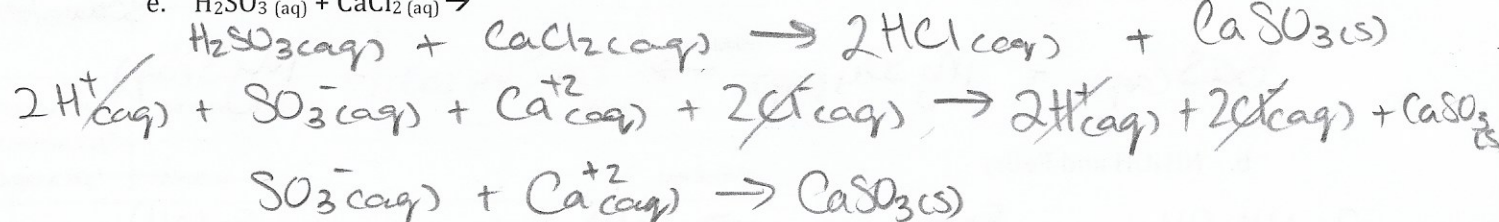 e. H₂SO₃ (aq) + CaCl₂ (aq) →
H₂SO₃(aq) + CaCl₂(aq) → 2HCl(aq) + CaSO₃(s)
2H⁺(aq) + SO₃⁻(aq) + Ca⁺²(aq) + 2Cl⁻(aq) → 2H⁺(aq) + 2Cl⁻(aq) + CaSO₃(s)
SO₃⁻(aq) + Ca⁺²(aq) → CaSO₃(s)